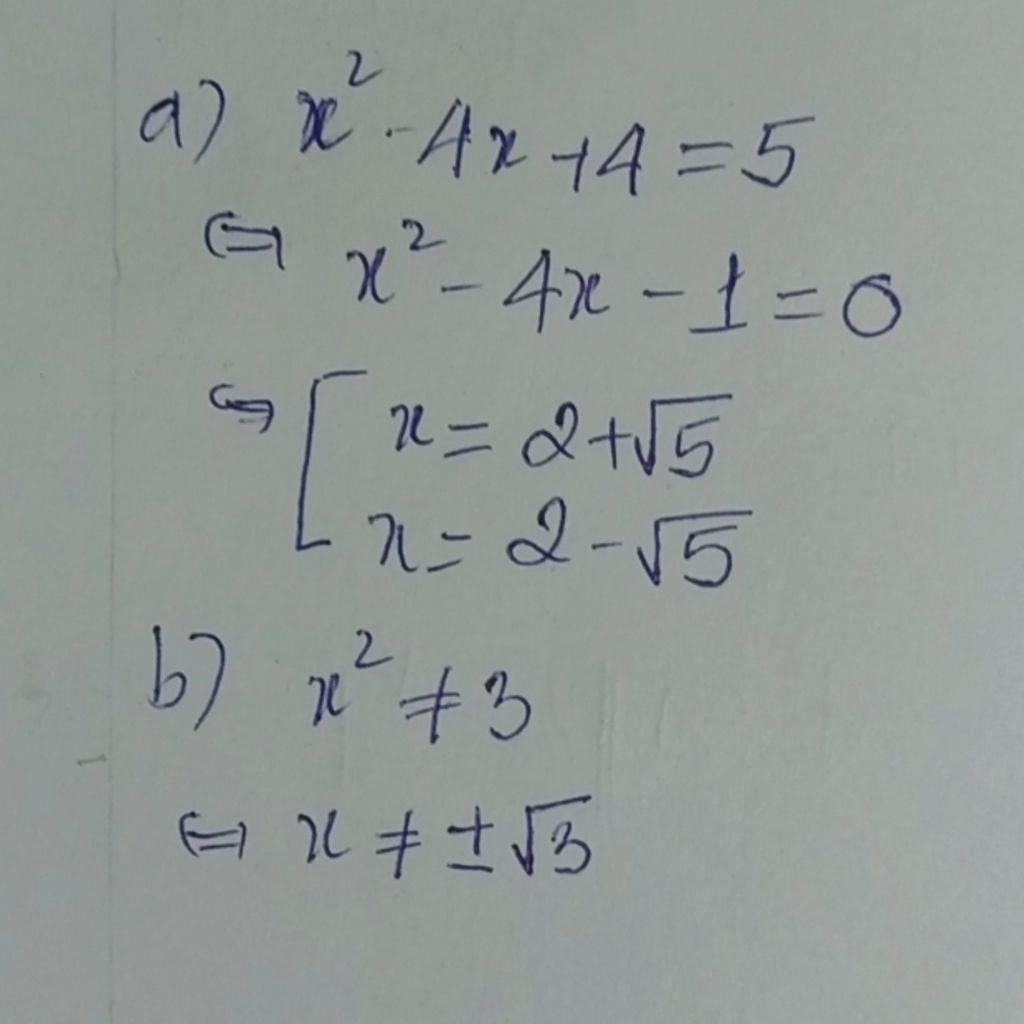 a) x² - 4x + 4 = 5
⇔ x² - 4x - 1 = 0
⇔ [ x = 2 + √5
x = 2 - √5
b) x² ≠ 3
⇔ x ≠ ± √3